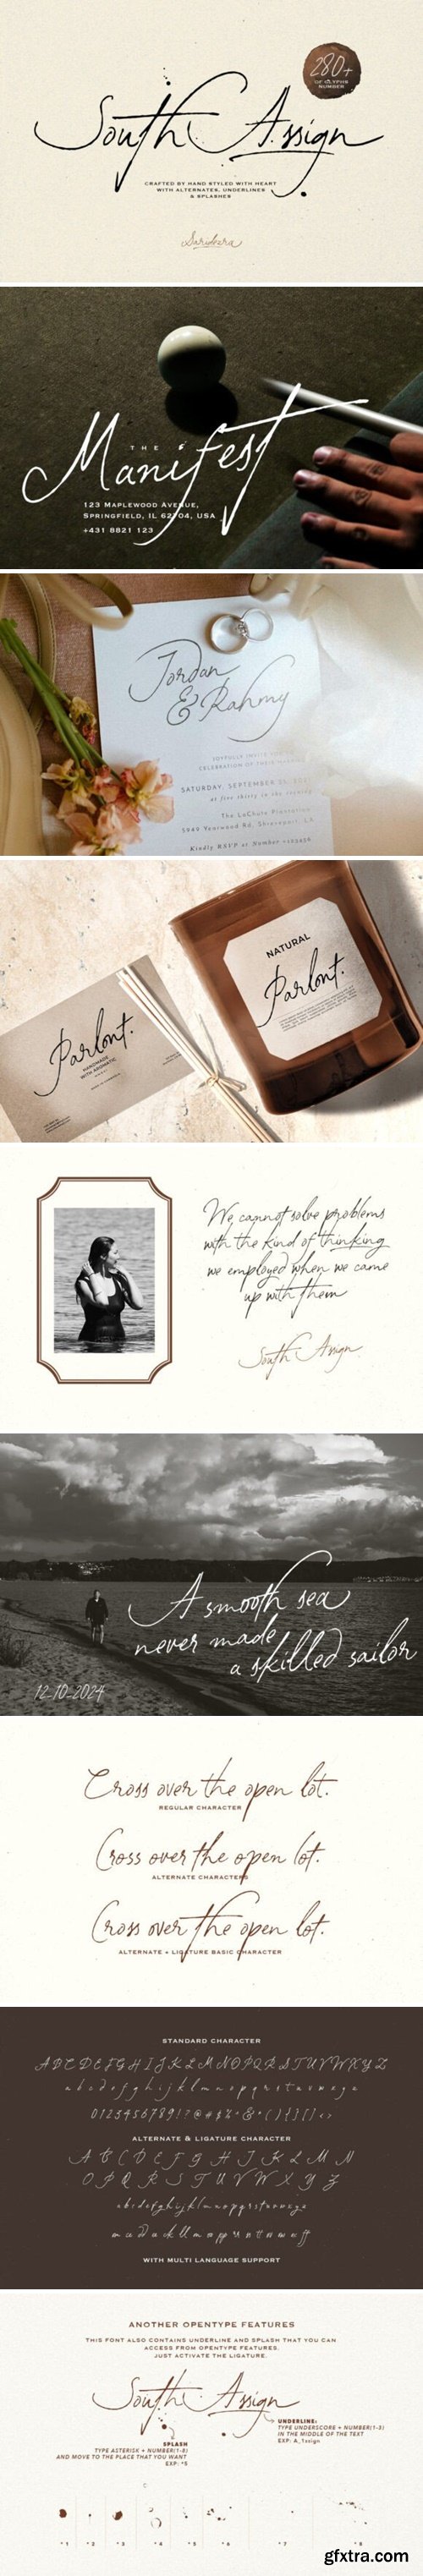 280+
OF GLYPHS
NUMBER
South Assign
CRAFTED BY HAND STYLED WITH HEART
WITH ALTERNATES, UNDERLINES
& SPLASHES
Sarideera
THE
Manifest
123 MAPLEWOOD AVENUE,
SPRINGFIELD, IL 62704, USA
+431 8821 123
Jordan
& Rahmy
JOYFULLY INVITE YOU
CELEBRATION OF THEIR
SATURDAY, SEPTEMBER
at five thirty in the evening
The LaChute Plantation
5940 Yourwood Rd, Shreveport, LA
Kindly RSVP at Number
NATURAL
Parlont.
Parlont.
HANDMADE
WITH AROMATIC
We cannot solve problems
with the kind of thinking
we employed when we came
up with them
South Assign
A smooth sea
never made
a skilled sailor
12-10-2024
Cross over the open lot.
REGULAR CHARACTER
Cross over the open lot.
ALTERNATE CHARACTERS
Cross over the open lot.
ALTERNATE + LIGATURE BASIC CHARACTER
STANDARD CHARACTER
A B C D E F G H I J K L M N O P Q R S T U V W X Y Z
a b c d e f g h i j k l m n o p q r s t u v w x y z
0123456789!?@#$%^&*(){}[]<>
ALTERNATE & LIGATURE CHARACTER
A B C D E F G H J K L M N
O P Q R S T U V W X Y Z
a b c d e f g h i j k l m n o p q r s t u v w x y z
WITH MULTI LANGUAGE SUPPORT
ANOTHER OPENTYPE FEATURES
THIS FONT ALSO CONTAINS UNDERLINE AND SPLASH THAT YOU CAN
ACCESS FROM OPENTYPE FEATURES.
JUST ACTIVATE THE LIGATURE.
South Assign
UNDERLINE:
TYPE UNDERSCORE + NUMBER(1-3)
IN THE MIDDLE OF THE TEXT
EXP: A_1ssign
SPLASH
TYPE ASTERISK + NUMBER(1-8)
AND MOVE TO THE PLACE THAT YOU WANT
EXP: *5
*1 *2 *3 *4 *5 *6 *7 *8
gfxtra.com